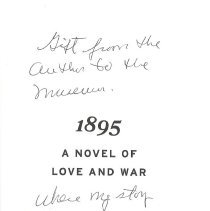 Gift from the
author to the
museum.
1895
A NOVEL OF
LOVE AND WAR
where my story